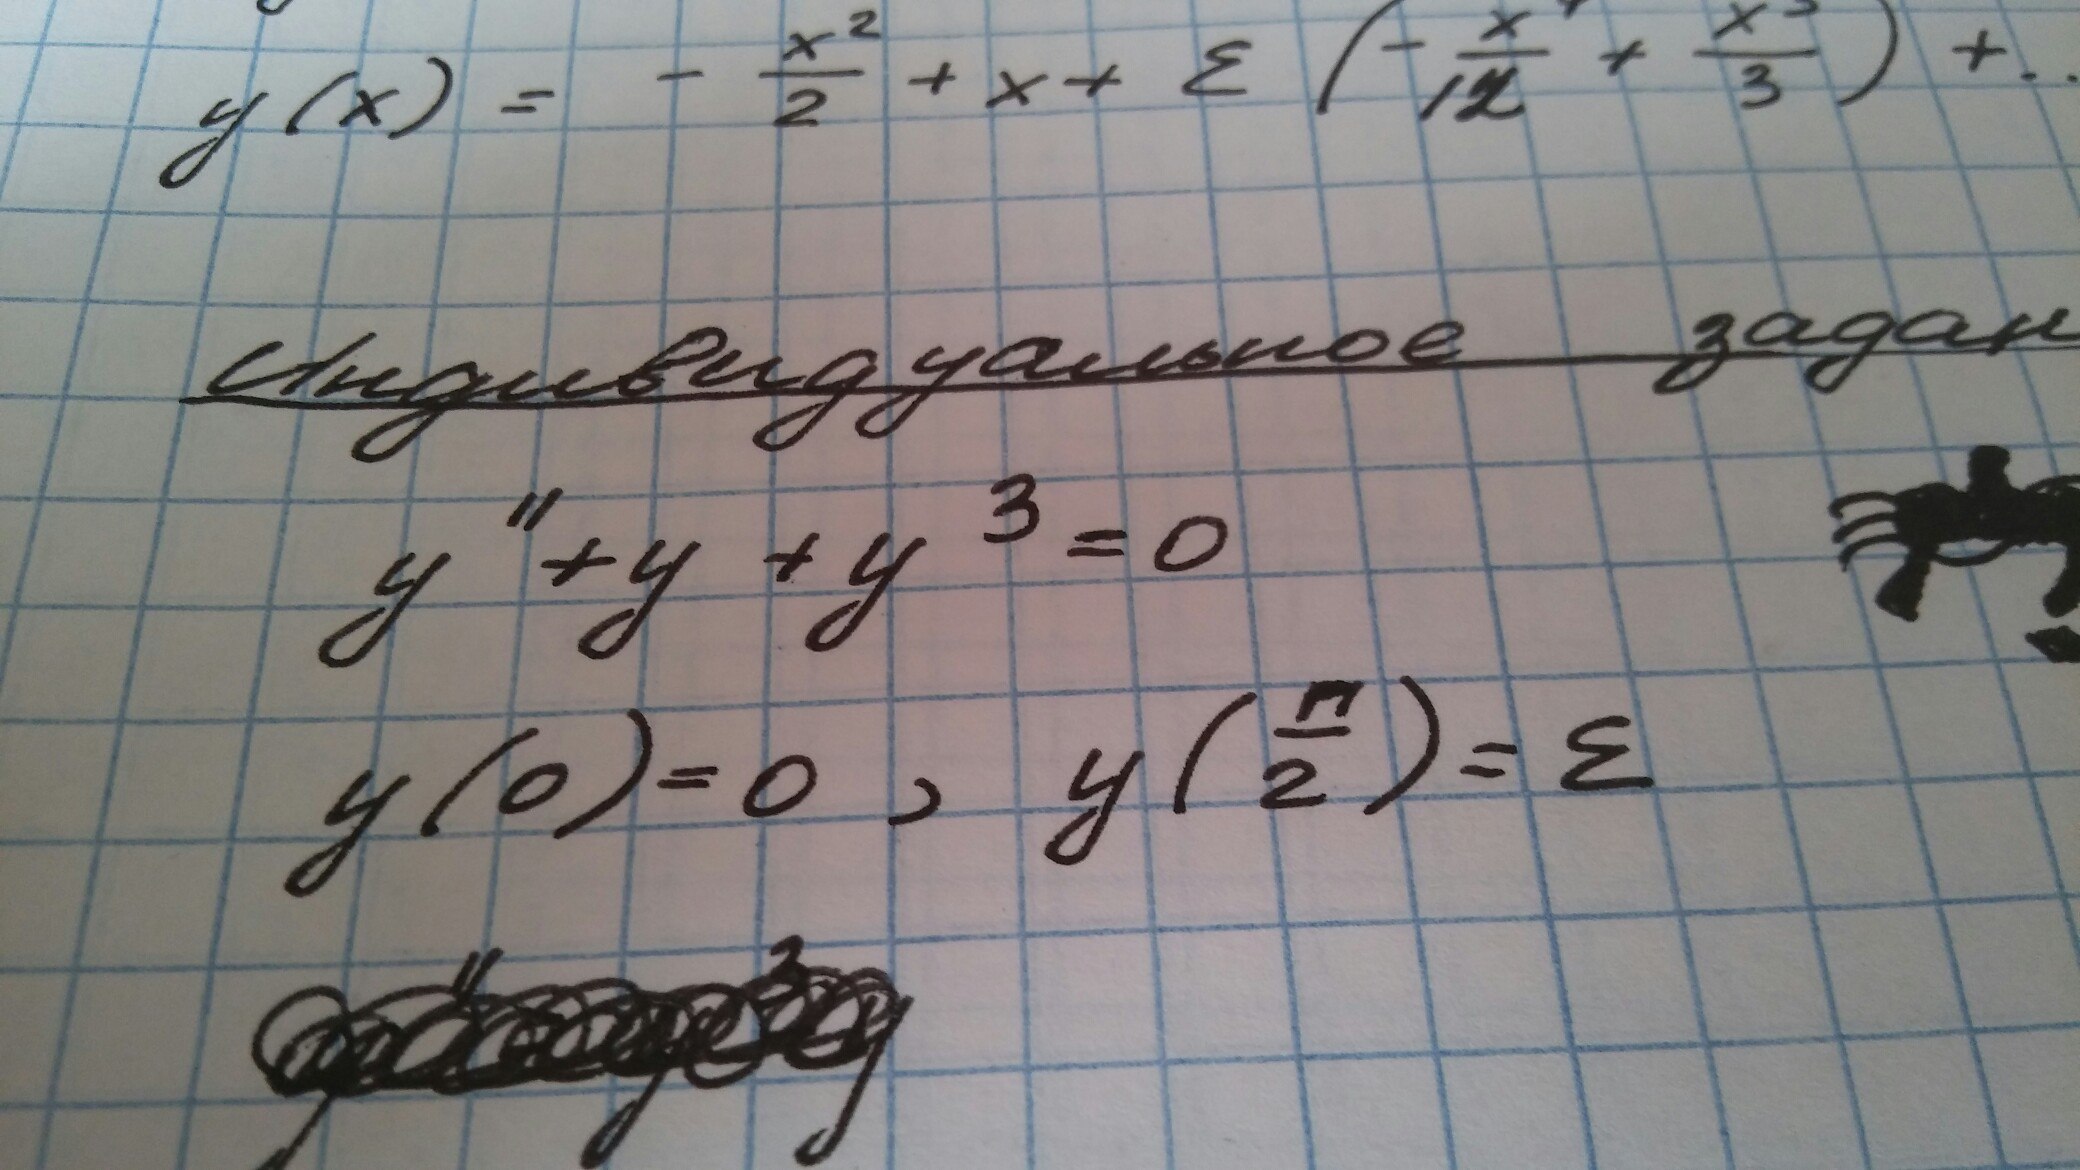 y(x) = - x²/2 + x + ε (- x⁴/12 + x³/3) + ...
Индивидуальное задан
y" + y + y³ = 0
y(0) = 0, y(π/2) = ε